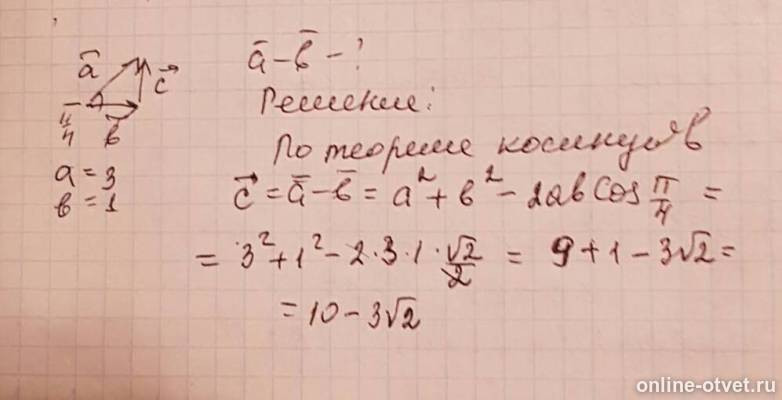 a̅ - b̅ - ?
a̅
c⃗
Решение:
π/4
b̅
По теореме косинусов
a = 3
c⃗ = a̅ - b̅ = a² + b² - 2ab cos π/4 =
b = 1
= 3² + 1² - 2·3·1·√2/2 = 9 + 1 - 3√2 =
= 10 - 3√2
online-otvet.ru